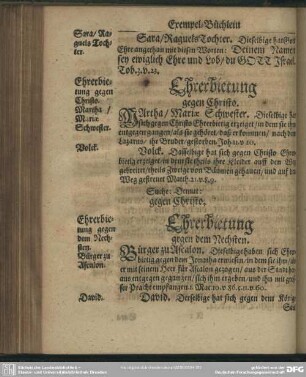 Exempel-Büchlein
Sara/ Ra-
guels Toch-
ter.
Sara/Raguels Tochter. Dieselbige hat Gott
Ehre angethan mit diesen Worten: Deinem Namen
sey ewiglich Ehre und Lob/ du GOTT Israel.
Tob. 3. v. 23.
Ehrerbie-
tung gegen
Christo.
Martha/
Maria
Schwester.
Ehrerbietung
gegen Christo.
MArtha/ Mariæ Schwester. Dieselbige ha
sich gegen Christo Ehrerbietig erzeiget/ in dem sie ihm
entgegen gangen/ als sie gehöret/ daß er kommen/ nach dem
Lazarus/ ihr Bruder/ gestorben. Joh. 11. v. 20.
Volck.
Volck. Dasselbige hat sich gegen Christo Ehrer-
bietig erzeiget/ in dem sie theils ihre Kleider auff den Weg
gebreitet/ theils Zweige von Bäumen gehauen/ und auff den
Weg gestreuet. Matth. 21. v. 8. 9.
Suche: Demut:
gegen Christo.
Ehrerbie-
tung gegen
dem Nech-
sten.
Bürger zu
Ascalon.
Ehrerbietung
gegen dem Nechsten.
BÜrger zu Ascalon. Dieselbige haben sich Ehrer-
bietig gegen dem Jonatha erwiesen/ in dem sie ihm/ als
er mit seinem Heer für Ascalon gezogen/ aus der Stadt ihm
entgegen gegangen/ sich ihm ergeben/ und ihn mit gros-
ser Pracht empfangen. 1. Mac. 10. v. 86. c. 11. v. 60.
David.
David. Derselbige hat sich gegen dem Könige
Sau